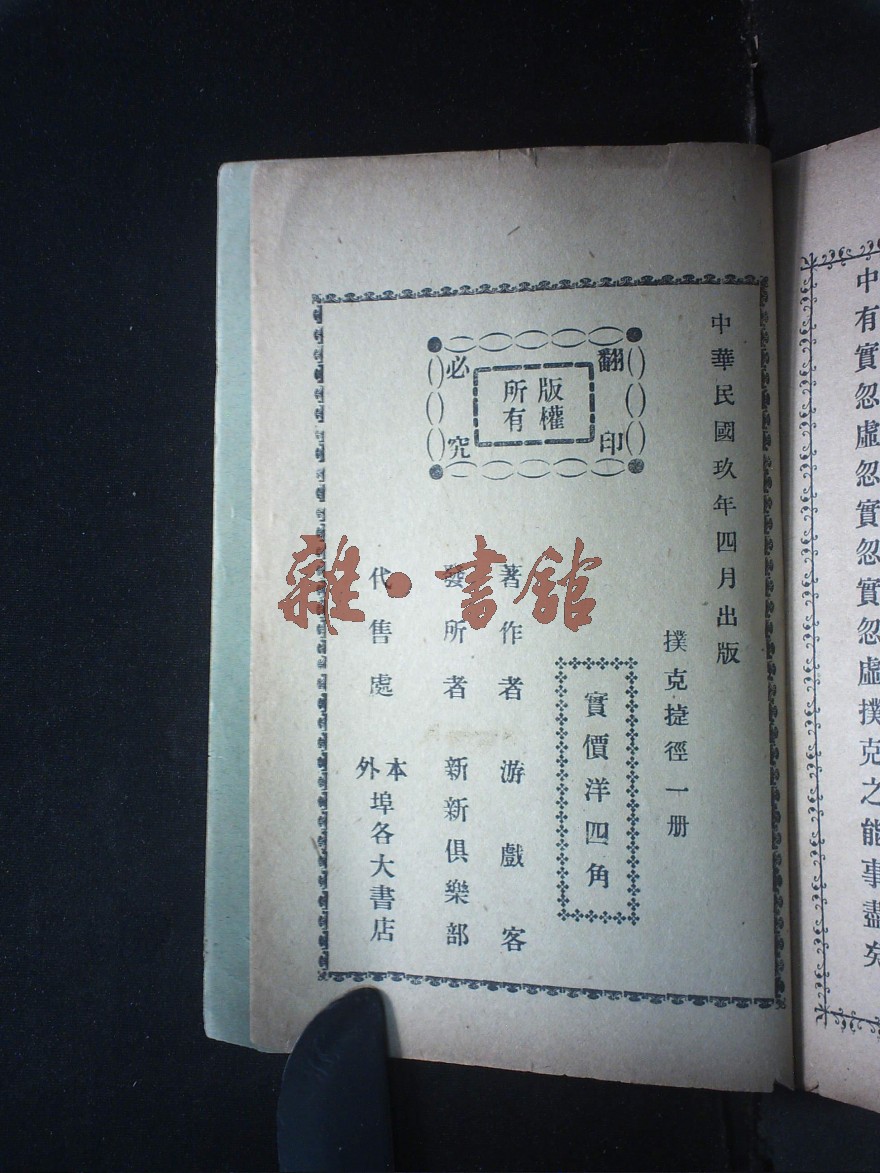 中有實忽虛忽實忽實忽虛撲克之能事盡矣
中華民國玖年四月出版
撲克捷徑一册
實價洋四角
翻印必究
版權所有
著作者 游戲客
發所者 新新俱樂部
代售處 本外埠各大書店
雜·書館